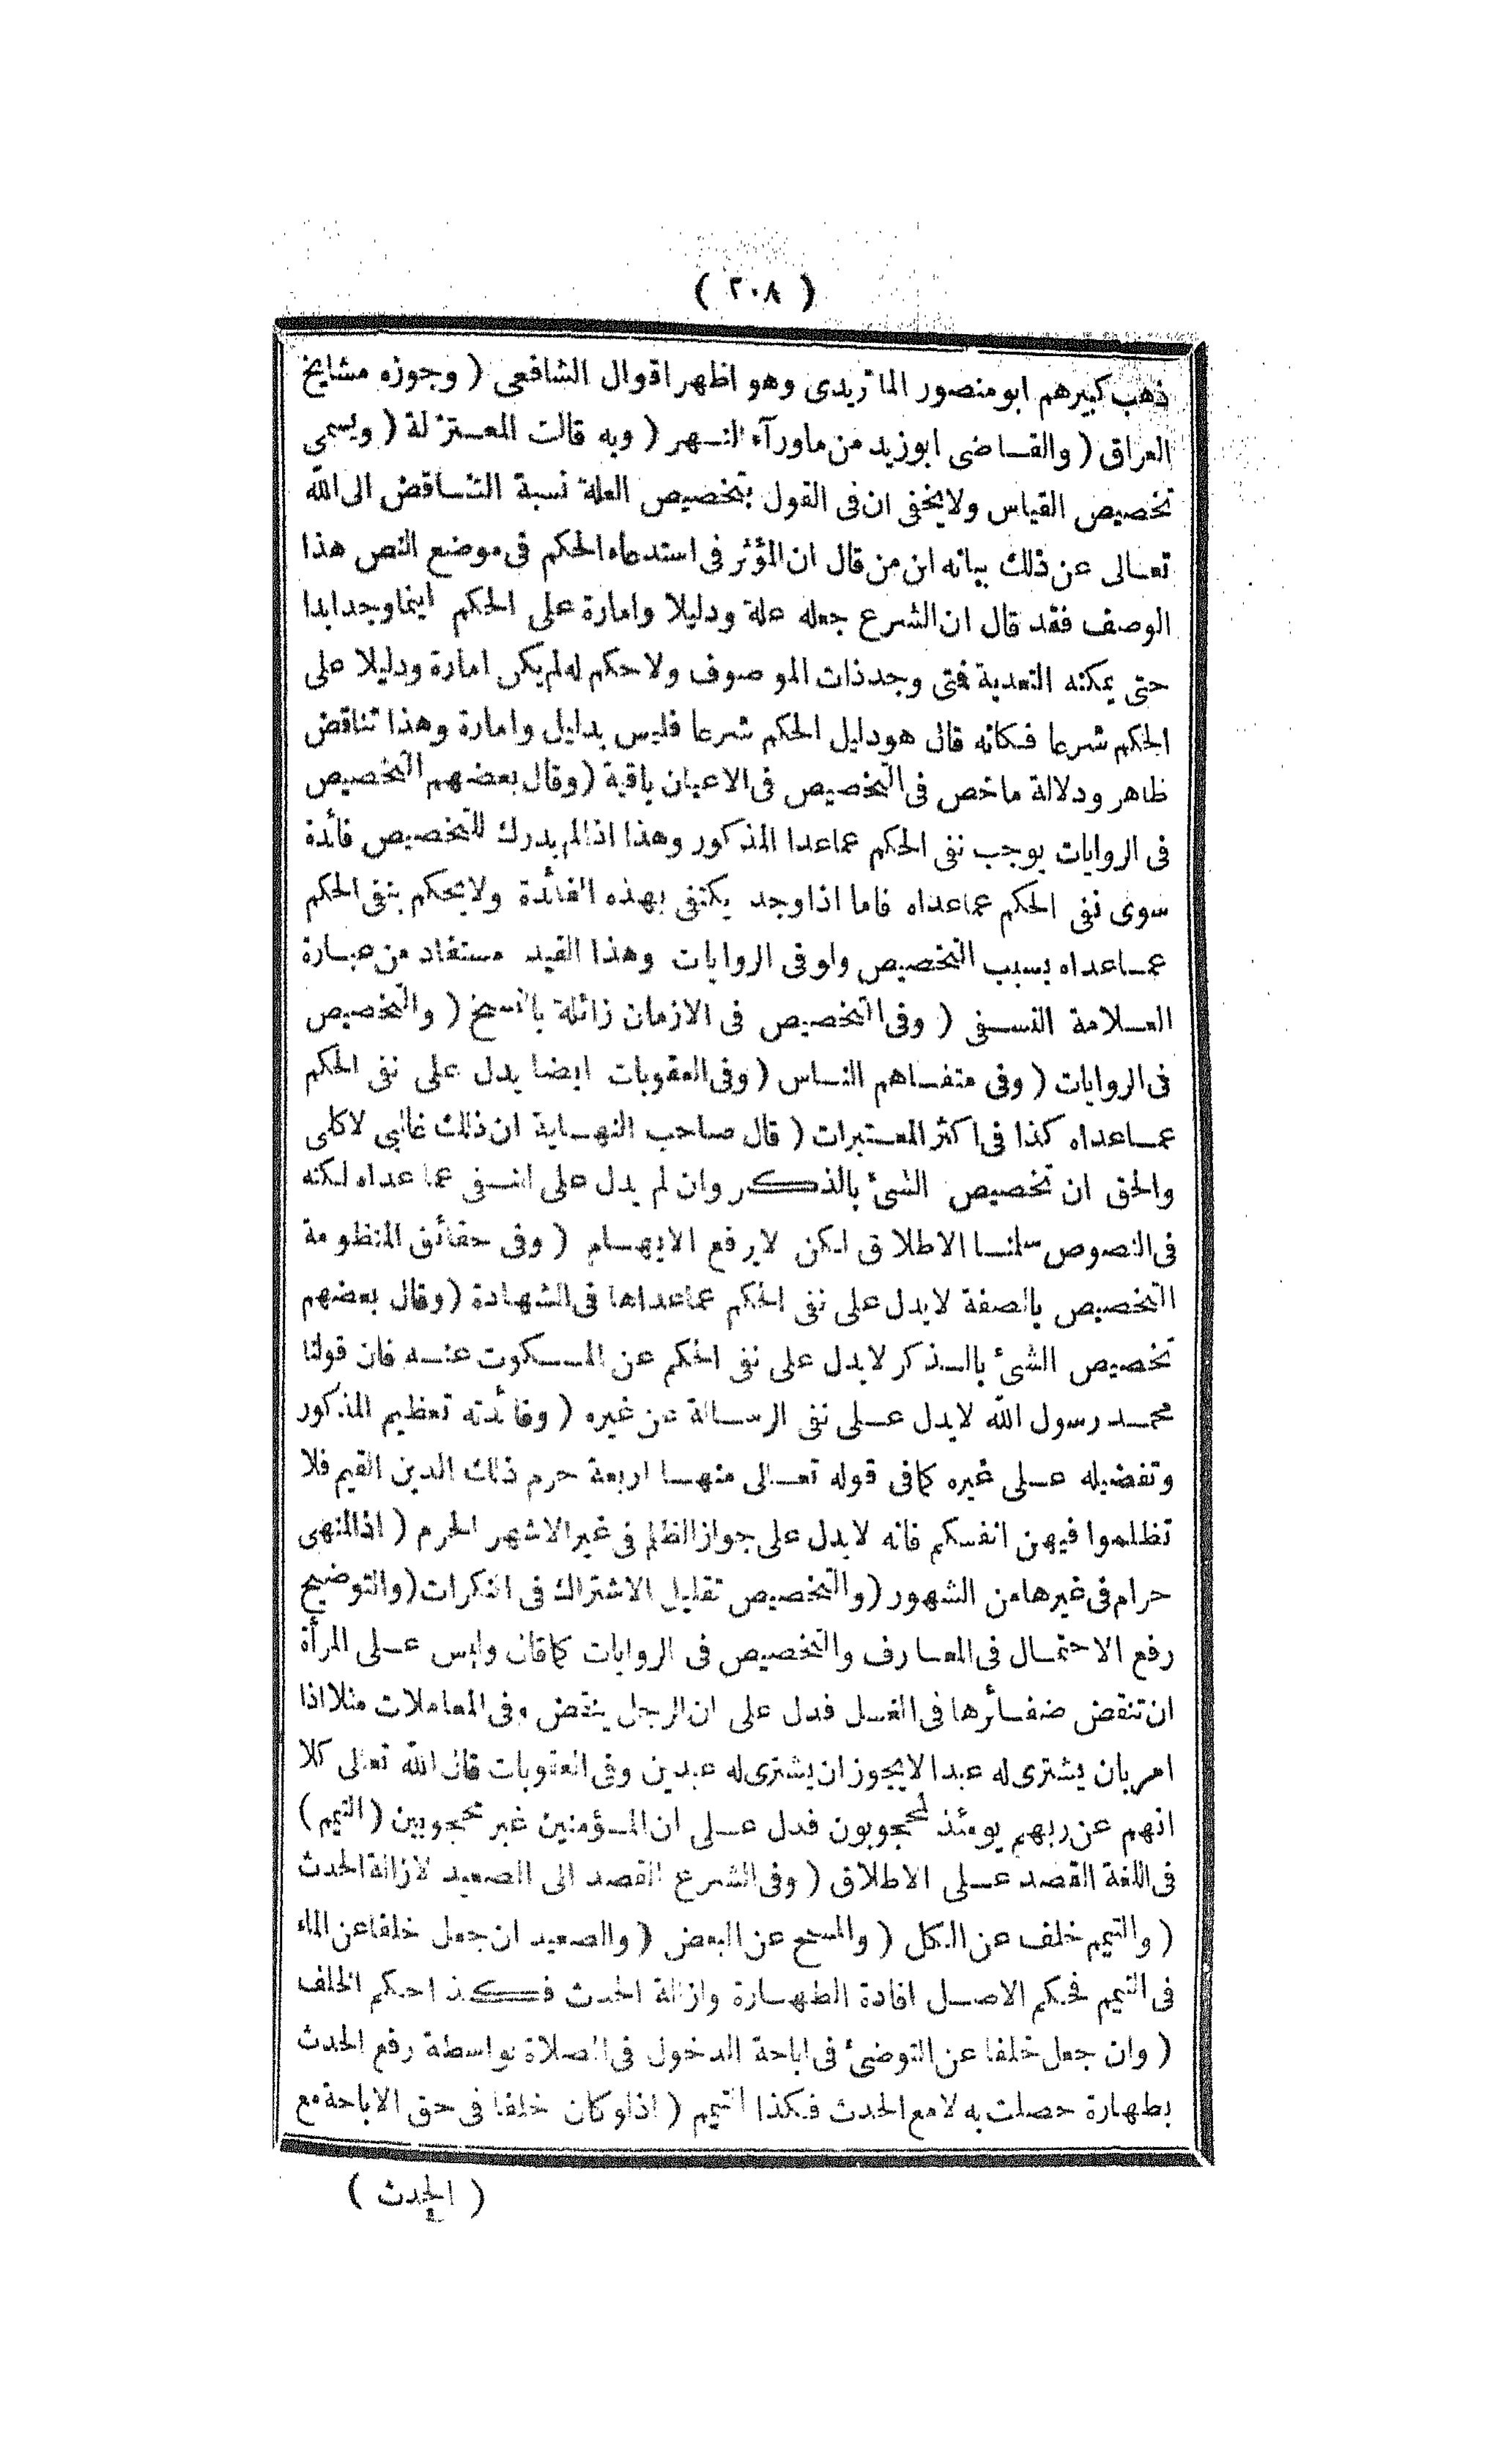 ( ٢٠٨ )
ذهب كبيرهم ابو منصور الماتريدى وهو اظهر اقوال الشافعى ( وجوزه مشايخ
العراق ( والقـاضى ابوزيد من ماورآء النـهر ( وبه قالت المعـتزلة ( ويسمى
تخصيص القياس ولا يخفى ان فى القول بتخصيص العلة نسبة التنـاقض الى الله
تعـالى عن ذلك بيانه ان من قال ان المؤثر فى استدعاء الحكم فى موضع النص هذا
الوصف فقد قال ان الشرع جعله علة ودليلا وامارة على الحكم اينما وجد ابدا
حتى يمكنه التعدية فمتى وجد ذات الموصوف ولا حكم له لم يكن امارة ودليلا على
الحكم شرعا فكانه قال هو دليل الحكم شرعا فليس بدليل وامارة وهذا تناقض
ظاهر ودلالة ما خص فى التخصيص فى الاعيان باقية ( وقال بعضهم التخصيص
فى الروايات يوجب نفى الحكم عما عدا المذكور وهذا اذا لم يدرك للتخصيص فائدة
سوى نفى الحكم عما عداه فاما اذا وجد يكتفى بهذه الفائدة ولا يحكم بنفى الحكم
عمـا عداه بسبب التخصيص ولو فى الروايات وهذا القيد مستفاد من عبـارة
العـلامة النسـفى ( وفى التخصيص فى الازمان زائلة بالنسخ ( والتخصيص
فى الروايات ( وفى متفـاهم النـاس ( وفى العقوبات ايضا يدل على نفى الحكم
عمـا عداه كذا فى اكثر المعـتبرات ( قال صاحب النهـاية ان ذلك غالبى لا كلى
والحق ان تخصيص الشئ بالذكر وان لم يدل على النـفى عما عداه لكنه
فى النصوص سلمنـا الاطلاق لكن لا يرفع الايهـام ( وفى حقائق المنظومة
التخصيص بالصفة لا يدل على نفى الحكم عما عداها فى الشهادة ( وقال بعضهم
تخصيص الشئ بالـذكر لا يدل على نفى الحكم عن المـسكوت عنـه فان قولنا
محمـد رسول الله لا يدل عـلى نفى الرسـالة عن غيره ( وفائدته تعظيم المذكور
وتفضيله عـلى غيره كما فى قوله تعـالى منهـا اربعة حرم ذلك الدين القيم فلا
تظلموا فيهن انفسكم فانه لا يدل على جواز الظلم فى غير الاشهر الحرم ( اذ المنهى
حرام فى غيرها من الشهور ( والتخصيص تقليل الاشتراك فى النكرات ( والتوضيح
رفع الاحتمـال فى المعـارف والتخصيص فى الروايات كما قال وليس عـلى المرأة
ان تنقض ضفـائرها فى الغسل فدل على ان الرجل ينقض وفى المعاملات مثلا اذا
امر بان يشترى له عبدا لا يجوز ان يشترى له عبدين وفى العقوبات قال الله تعالى كلا
انهم عن ربهم يومئذ لمحجوبون فدل عـلى ان المـؤمنين غير محجوبين ( التيمم )
فى اللغة القصد عـلى الاطلاق ( وفى الشرع القصد الى الصعيد لازالة الحدث
( والتيمم خلف عن الكل ( والمسح عن البعض ( والصعيد ان جعل خلفا عن الماء
فى التيمم فحكم الاصـل افادة الطهـارة وازالة الحدث فـكذا حكم الخلف
( وان جعل خلفا عن التوضئ فى اباحة الدخول فى الصلاة بواسطة رفع الحدث
بطهارة حصلت به لا مع الحدث فكذا التيمم ( اذ لو كان خلفا فى حق الاباحة مع
( الحدث )